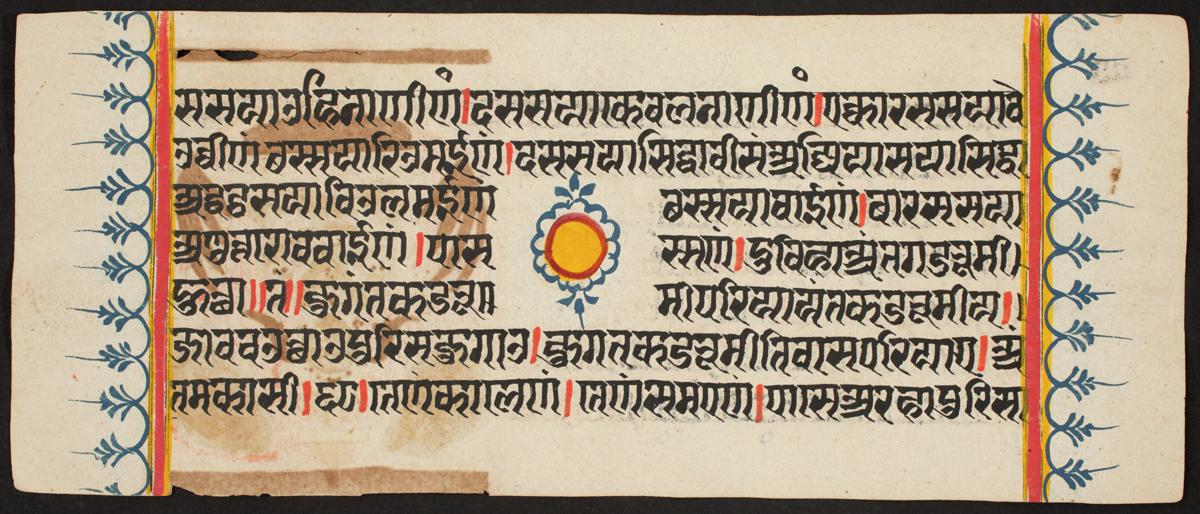 ससयाउहिनाणीणं।दससयाकेवलनाणीणं।एक्कारससयावे
उव्वीणंछस्सयारिउमईणं।दससयासिद्धावीसंअज्जियासयासिद्धा
अद्धट्ठसयाविउलमईणं छस्सयावाईणं।बारससया
अणुत्तरोववाईणं।पास स्सणं।दुविहाअंतगडभूमी।
हुत्था॥तं॥जुगंतकडभू मीपरियायंतकडभूमीय।
जावचउत्थाउपुरिसजुगाउ।जुगंतकडभूमीतिवासपरियाए।अं
तमकासी।तेणंकालेणं।तेणंसमएणं।पासेअरहापुरिसा